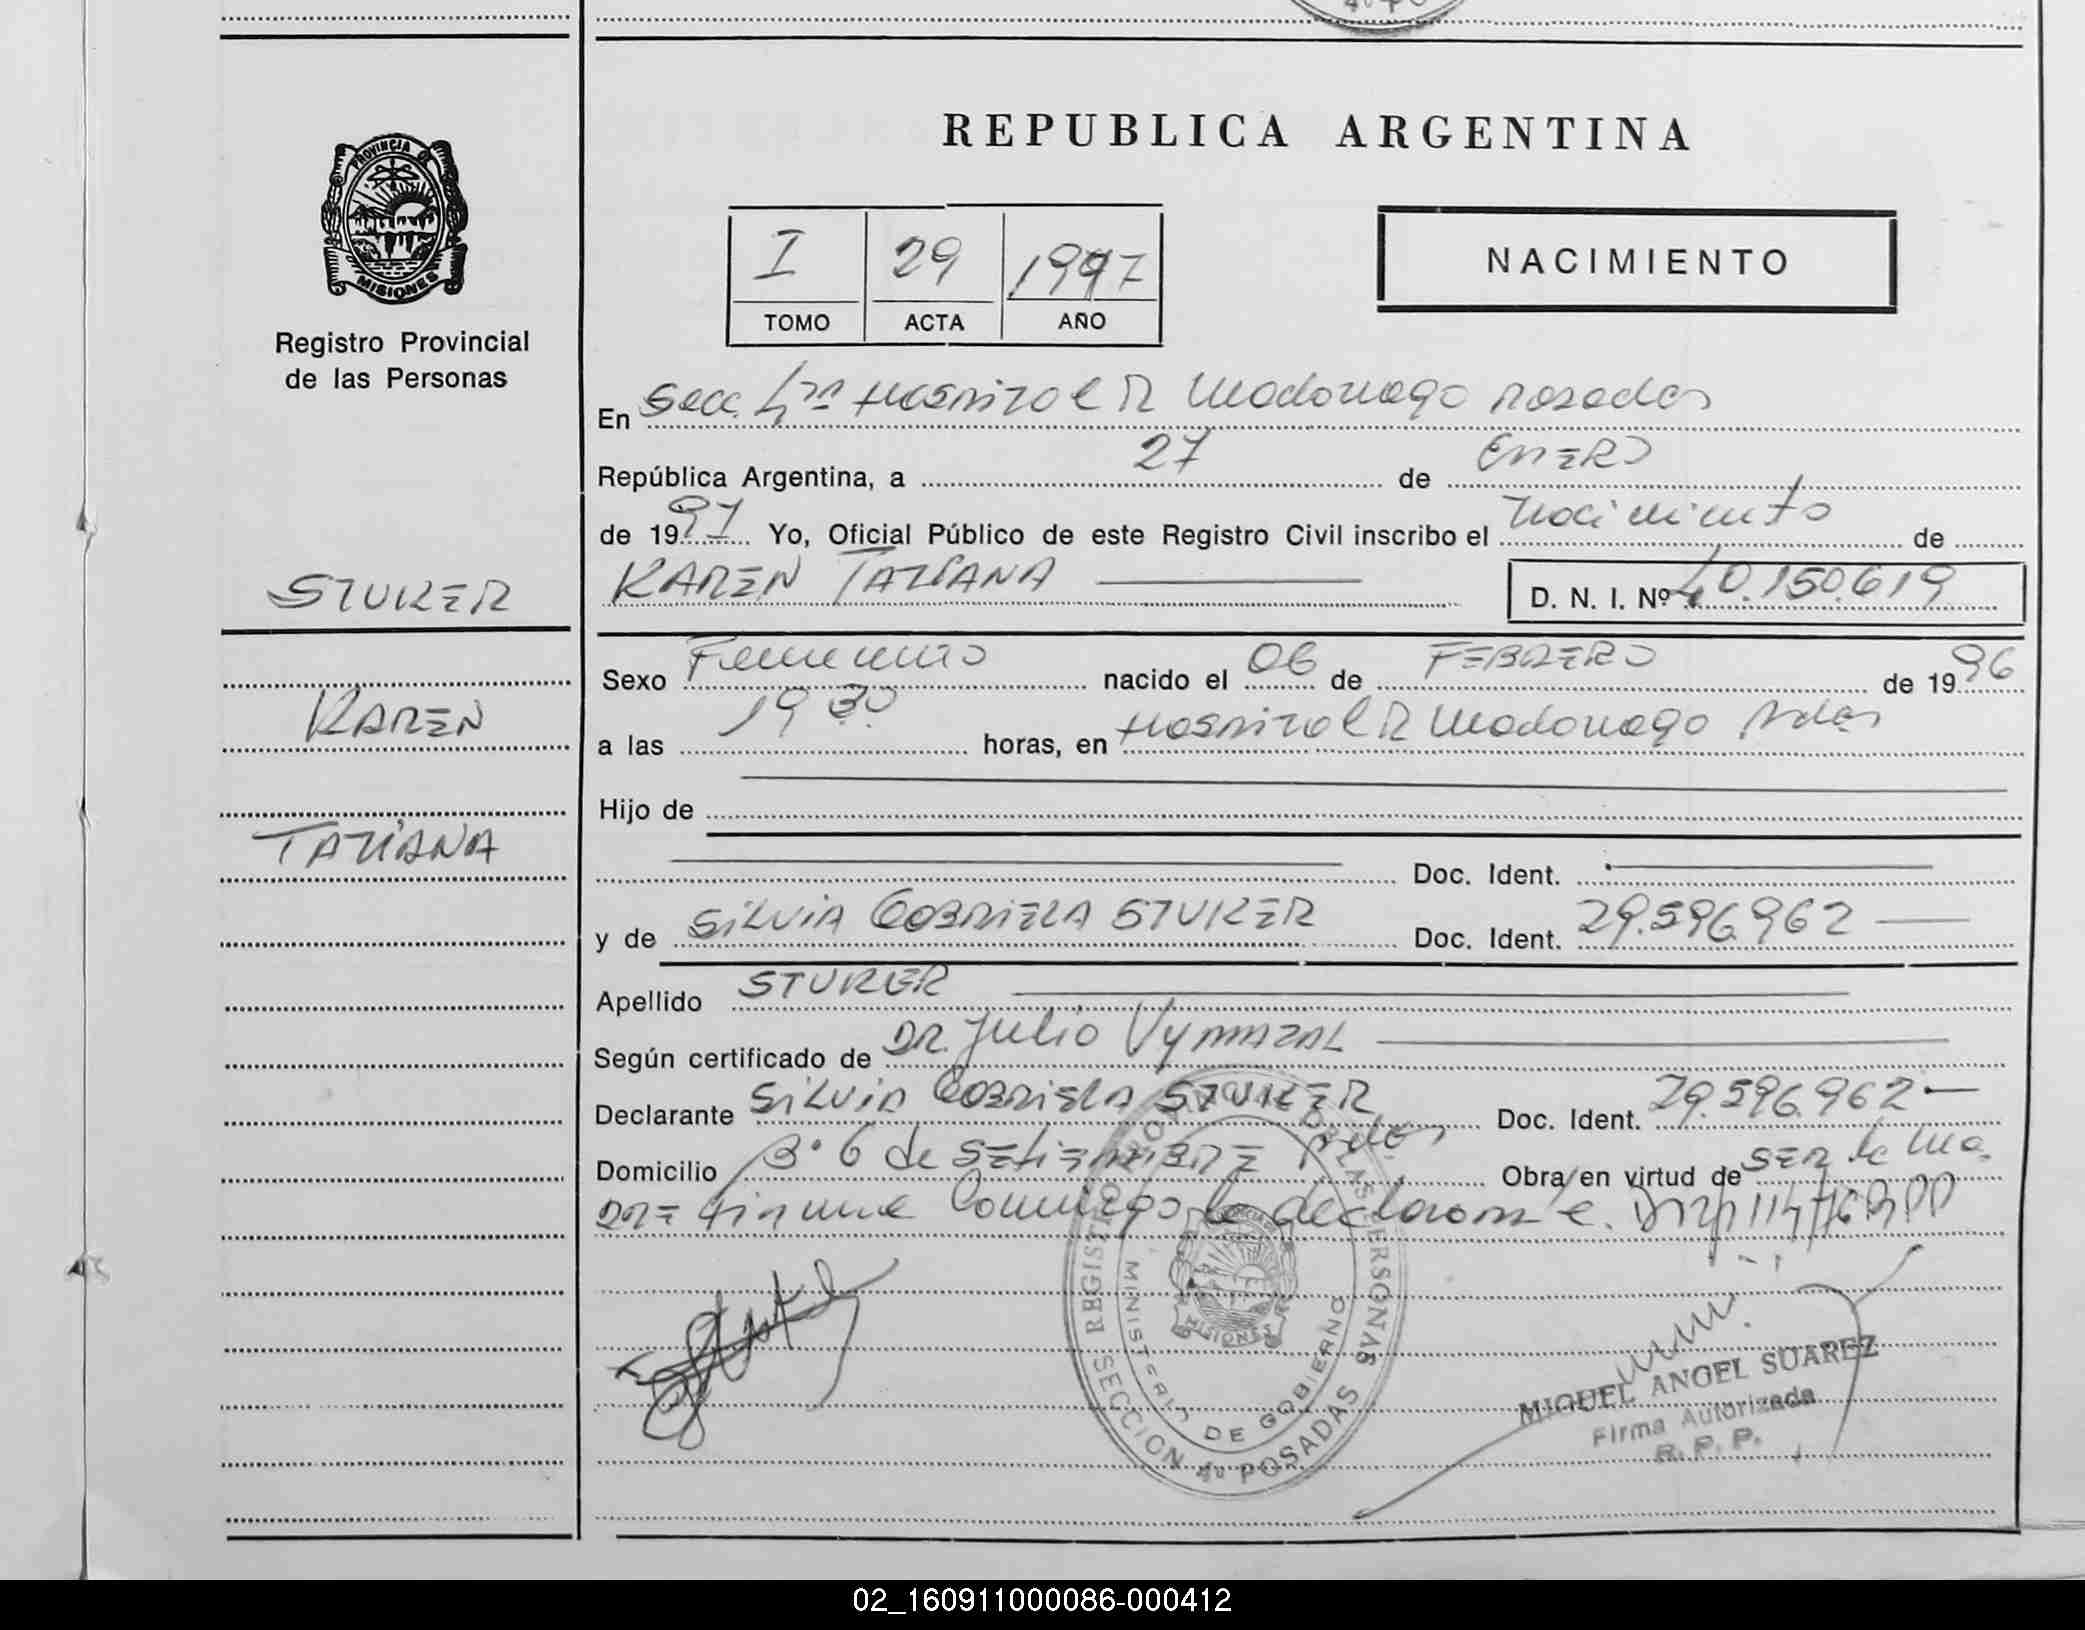 REPUBLICA ARGENTINA
PROVINCIA DE
MISIONES
Registro Provincial
de las Personas
I 29 1997
TOMO ACTA AÑO
NACIMIENTO
En Secc. 4ta Hospital R Madariaga Posadas
República Argentina, a 27 de ENERO
de 1997 Yo, Oficial Público de este Registro Civil inscribo el Nacimiento de
KAREN TATIANA D. N. I. Nº 40.150.619
STUKER
KAREN
TATIANA
Sexo Femenino nacido el 06 de FEBRERO de 1996
a las 19 30 horas, en Hospital R Madariaga Pdas
Hijo de
Doc. Ident.
y de SILVIA GABRIELA STUKER Doc. Ident. 29.596.962
Apellido STUKER
Según certificado de DR. Julio Vymazal
Declarante SILVIA GABRIELA STUKER Doc. Ident. 29.596.962
Domicilio Bº 6 de SETIEMBRE Pdas Obra en virtud de SER la Ma
DRE firma Conmigo la declarante.
REGISTRO PROVINCIAL DE LAS PERSONAS
MINISTERIO DE GOBIERNO
MISIONES
SECCION 4ta POSADAS
MIGUEL ANGEL SUAREZ
Firma Autorizada
R. P. P.
02_160911000086-000412